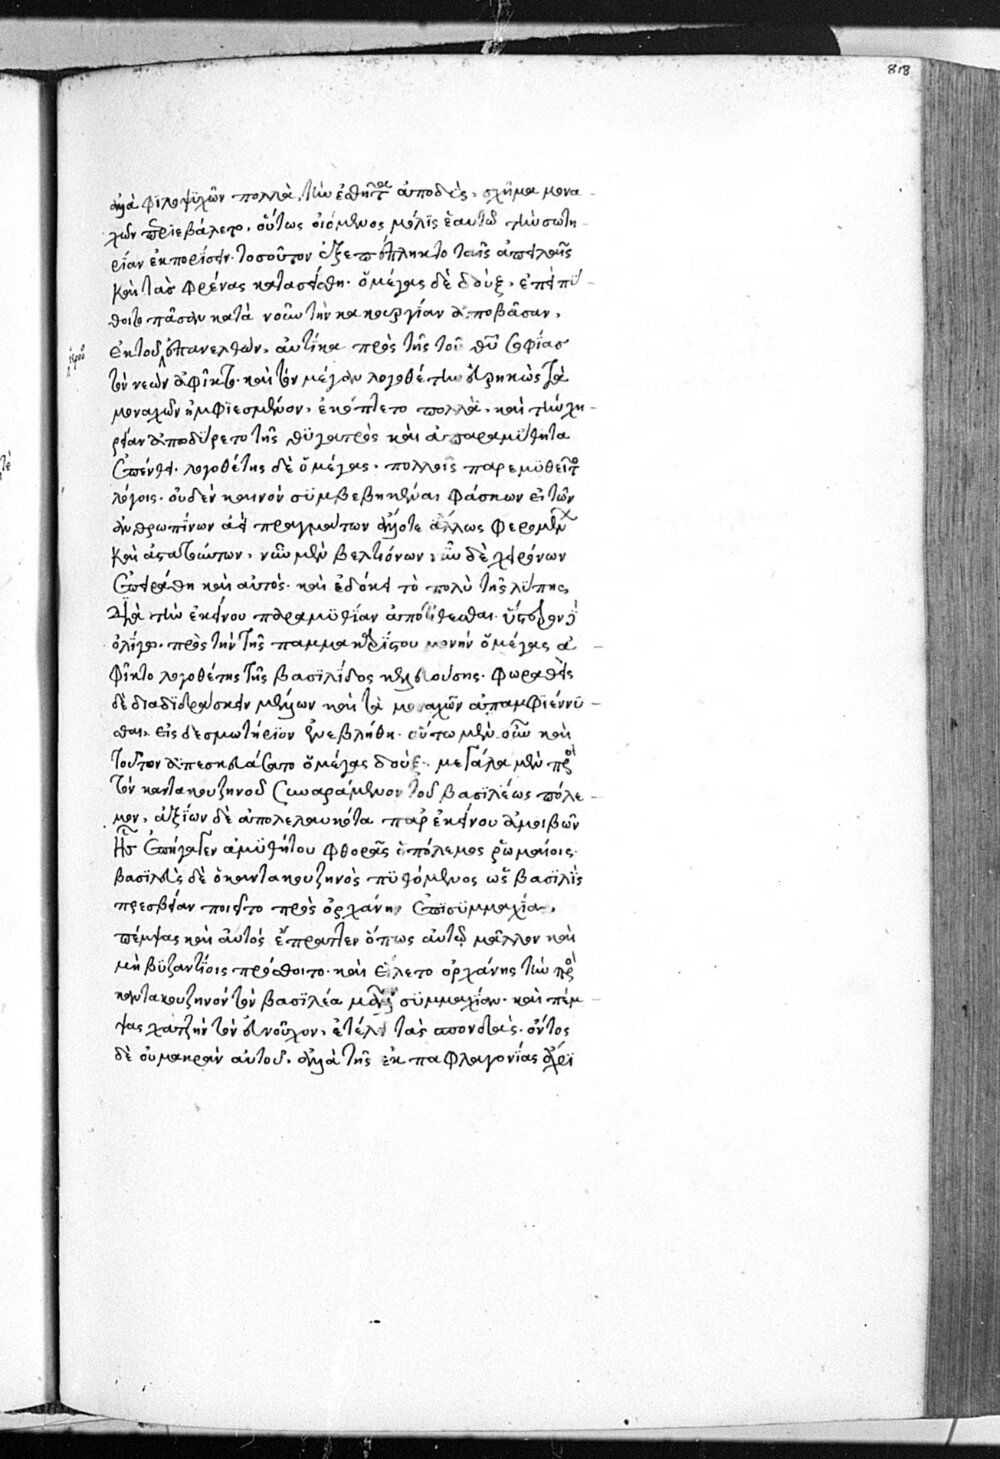 818
ἀλλὰ φιλοψυχῶν πολλὰ, τὴν ἐσθῆτα ἀποδὺς, σχῆμα μονα-
χῶν περιεβάλετο, οὕτως οἰόμενος μόλις ἑαυτῷ τὴν σωτη-
ρίαν ἐκπορίσειν. τοσοῦτον ἐξεπέπληκτο ταῖς ἀπειλαῖς
καὶ τὰς φρένας κατεσείσθη. ὁ μέγας δὲ δοὺξ, ἐπεὶ πύ-
θοιτο πᾶσαν κατὰ νοῦν τὴν κακουργίαν ἀποβᾶσαν,
ἐκ τοῦ ἐπανελθὼν, αὐτίκα πρὸς τῆς τοῦ θῦ σοφίας
ἱεροῦ
τὸν νεὼν ἀφῖκτο. καὶ τὸν μέγαν λογοθέτην εὑρηκὼς τὰ
μοναχῶν ἠμφιεσμένον, ἐκόπτετο πολλὰ, καὶ τὴν χη-
ρείαν ἀπωδύρετο τῆς θυγατρὸς καὶ ἀπαραμύθητα
ἐπένθει. λογοθέτης δὲ ὁ μέγας, πολλοῖς παρεμυθεῖτο
λόγοις. οὐδὲν καινὸν συμβεβηκέναι φάσκων ἐκ τῶν
ἀνθρωπίνων ἀεὶ πραγμάτων ἄλλοτε ἄλλως φερομένων
καὶ ἀστατούντων, νῦν μὲν βελτιόνων, νῦν δὲ χειρόνων
ἐπειράθη καὶ αὐτός. καὶ ἐδόκει τὸ πολὺ τῆς λύπης,
διὰ τὴν ἐκείνου παραμυθίαν ἀποτίθεσθαι. ὕστερον δὲ
ὀλίγῳ, πρὸς τὴν τῆς παμμακαρίστου μονὴν ὁ μέγας ἀ-
φῖκτο λογοθέτης τῆς βασιλίδος κελευούσης. φωραθεὶς
δὲ διαδιδράσκειν μέλλων καὶ τὰ μοναχῶν ἀπαμφιέννυ-
σθαι, εἰς δεσμωτήριον ἐνεβλήθη. οὕτω μὲν οὖν καὶ
τοῦτον ἀπεσκευάσατο ὁ μέγας δοὺξ, μεγάλα μὲν πρὸς
τὸν καντακουζηνοῦ συναράμενον τοῦ βασιλέως πόλε-
μον, ἀξίων δὲ ἀπολελαυκότα παρ' ἐκείνου ἀμοιβῶν
ἧς ἐπήγαγεν ἀμυθήτου φθορᾶς ὁ πόλεμος ῥωμαίοις.
βασιλεὺς δὲ ὁ καντακουζηνὸς πυθόμενος ὡς βασιλὶς
πρεσβείαν ποιεῖτο πρὸς ὀρχάνην ἐπὶ συμμαχίαν,
πέμψας καὶ αὐτὸς ἔπραττεν ὅπως αὐτῷ μᾶλλον καὶ
μὴ βυζαντίοις πρόσθοιτο. καὶ εἵλετο ὀρχάνης τὴν πρὸς
καντακουζηνὸν τὸν βασιλέα μᾶλλον συμμαχίαν. καὶ πέμ-
ψας χατζῆν τὸν εὐνοῦχον, ἐτέλει τὰς σπονδάς. ὄντος
δὲ οὐ μακρὰν αὐτοῦ, ἀλλὰ τῆς ἐκ παφλαγονίας ἄχρι